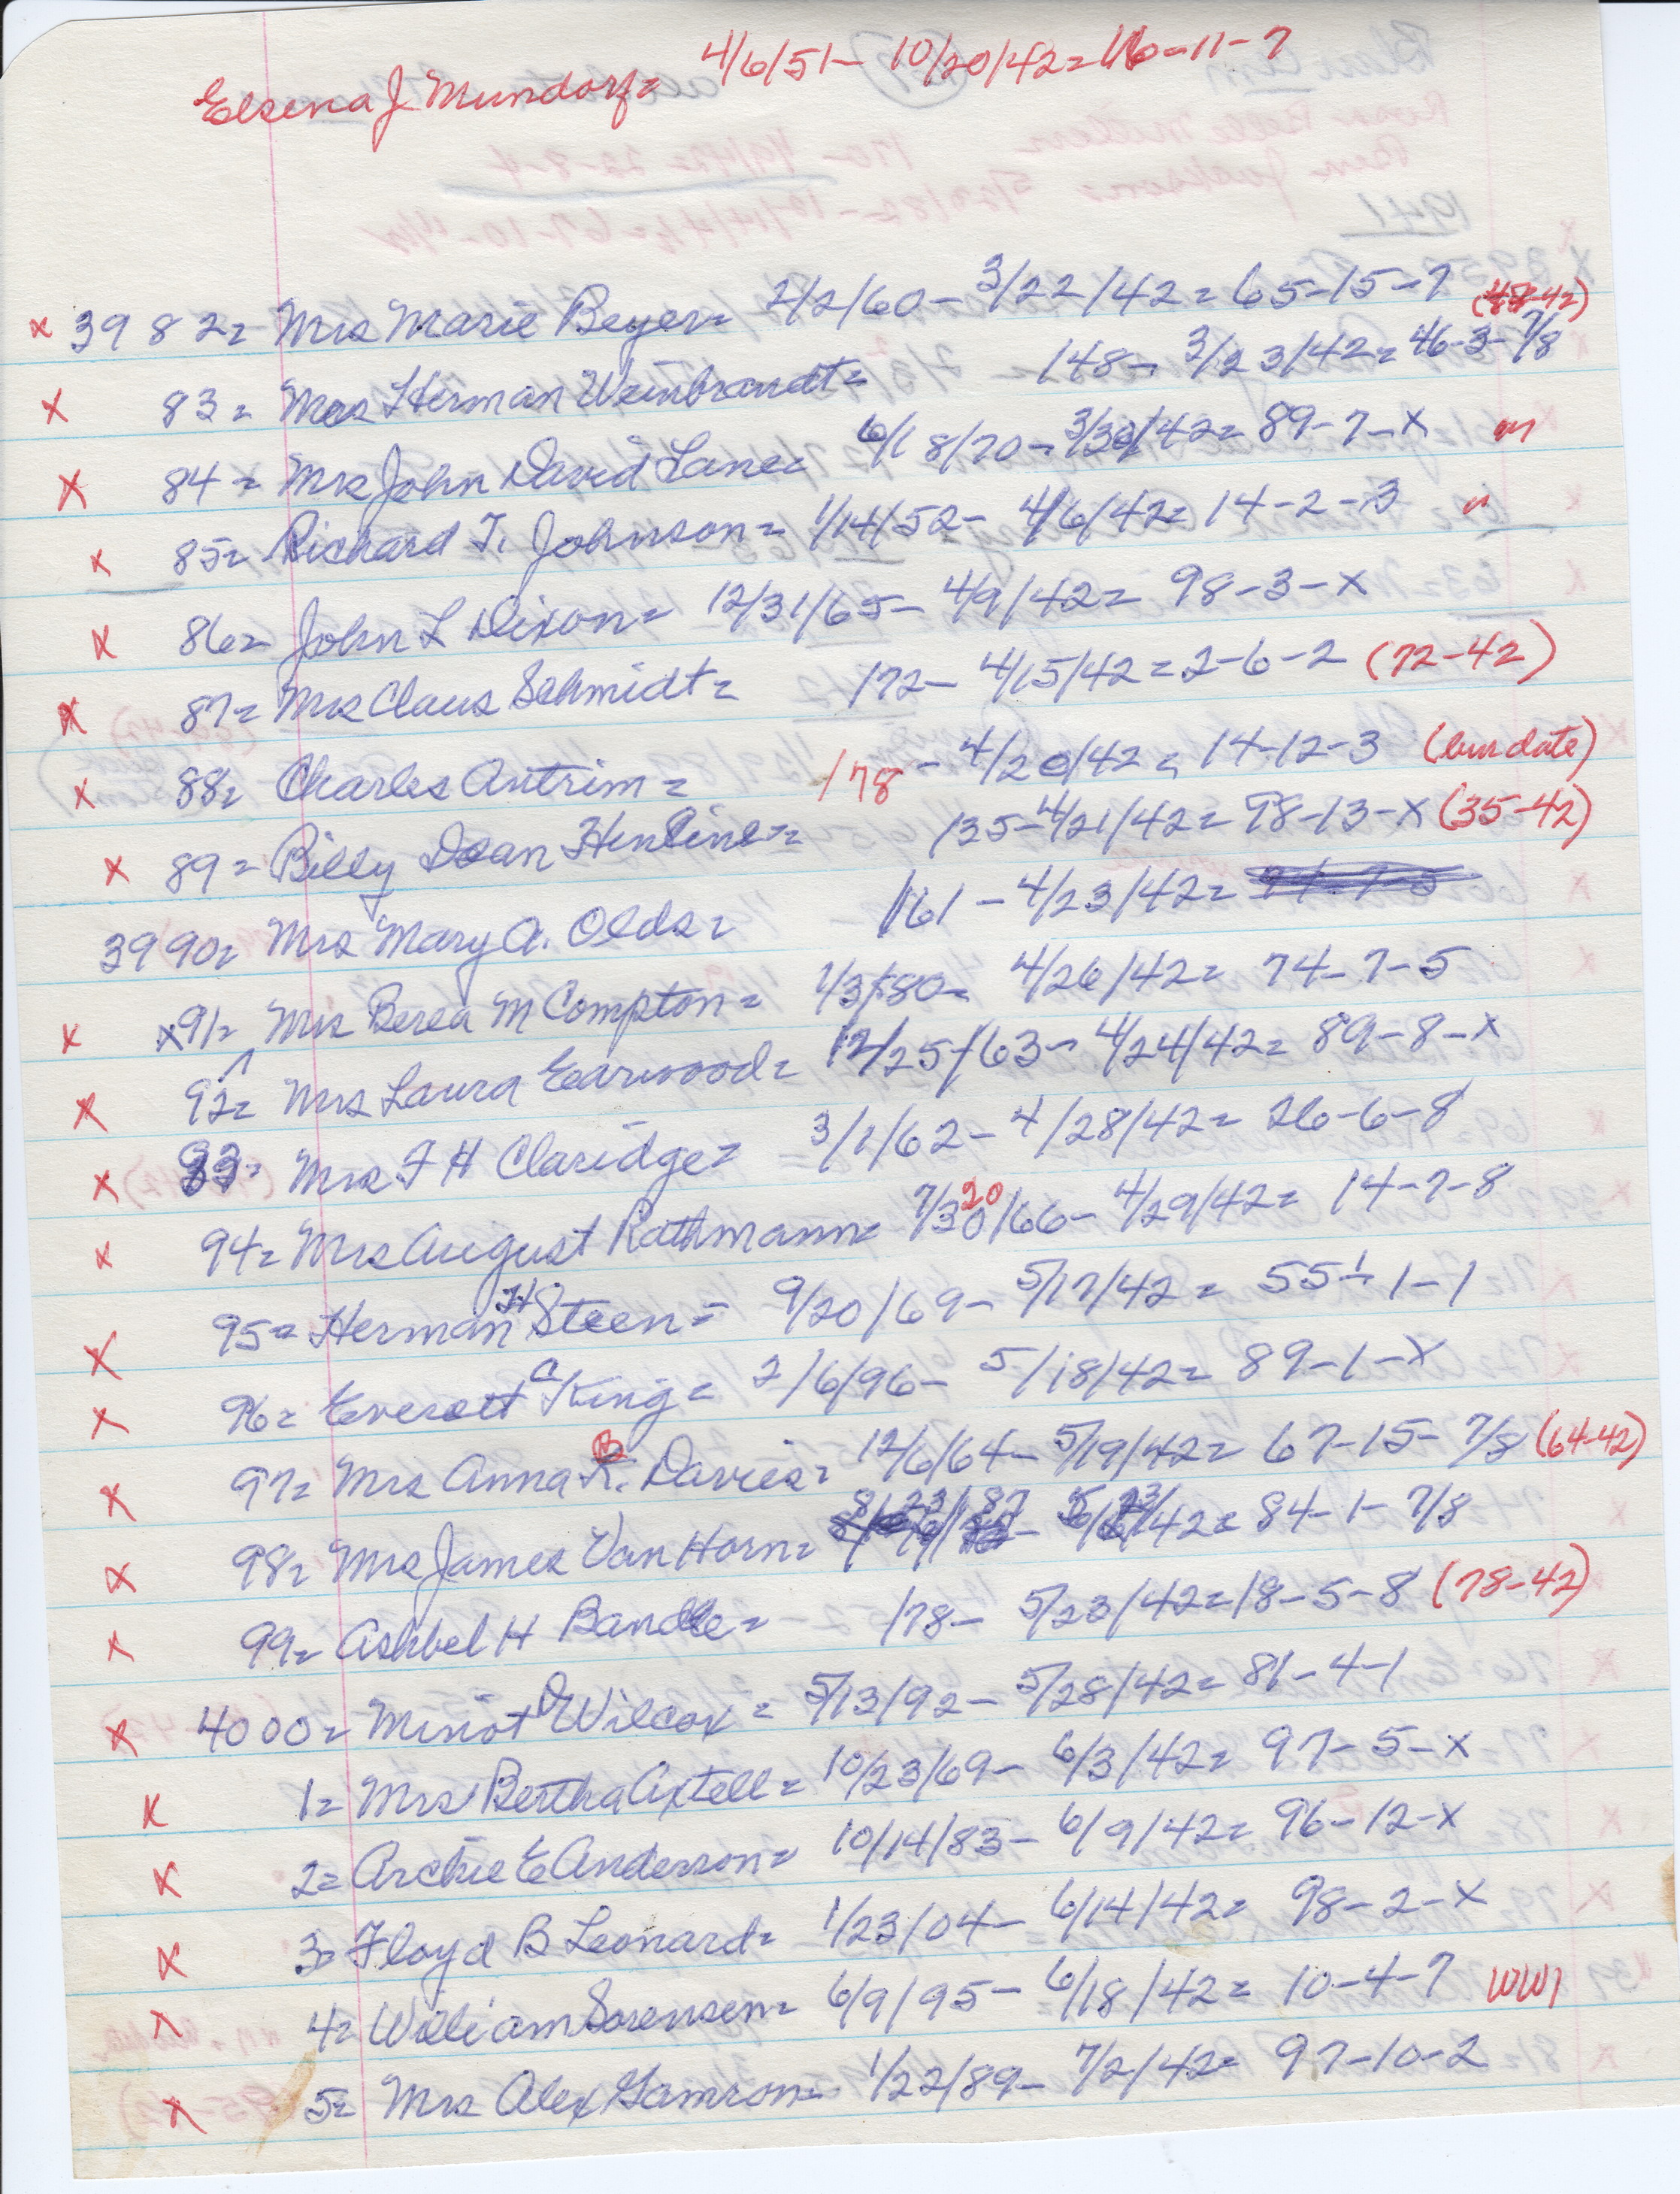 Elsena J Mundorf= 4/6/51- 10/20/42= 16-11-7
x 3982= Mrs Marie Beyer= 2/2/60- 3/22/42= 65-15-7
x 83= Mrs Herman Weinbrandt= 148- 3/23/42= 46-3-7/8 (48-42)
x 84= Mrs John David Lane= 6/18/70- 3/30/42= 89-7-x
x 85= Richard T. Johnson= 1/14/52- 4/6/42= 14-2-3
x 86= John L Dixon= 12/31/65- 4/9/42= 98-3-x
x 87= Mrs Claus Schmidt= 172- 4/15/42= 2-6-2 (72-42)
x 88= Charles Antrim= 178- 4/20/42= 14-12-3 (bur date)
x 89= Billy Dean Henline= 135-4/21/42= 98-13-x (35-42)
3990= Mrs Mary A. Olds= 161- 4/23/42=
x x91= Mrs Berea M Compton= 1/3/80= 4/26/42= 74-7-5
x 92= Mrs Laura Earwood= 12/25/63- 4/24/42= 89-8-x
x 93= Mrs F H Claridge= 3/1/62- 4/28/42= 26-6-8
x 94= Mrs August Rathmann= 7/30/66- 4/29/42= 14-7-8 20
x 95= Herman H Steen= 9/20/69- 5/17/42= 55-1-1
x 96= Everett C King= 2/6/96- 5/18/42= 89-1-x
x 97= Mrs Anna K. Davies= 12/6/64- 5/19/42= 67-15-7/8 (64-42) B
x 98= Mrs James Van Horn= 8/23/87- 5/23/42= 84-1-7/8
x 99= Ashbel H Bandle= 178- 5/23/42= 18-5-8 (78-42)
x 4000= Minot D Wilcox= 5/13/92- 5/28/42= 81-4-1
x 1= Mrs Bertha Axtell= 10/23/69- 6/3/42= 97-5-x
x 2= Archie E Anderson= 10/14/83- 6/9/42= 96-12-x
x 3= Floyd B Leonard= 1/23/04- 6/14/42= 98-2-x
x 4= William Sorensen= 6/9/95- 6/18/42= 10-4-7 WW1
x 5= Mrs Alex Gamron= 1/22/89- 7/2/42= 97-10-2